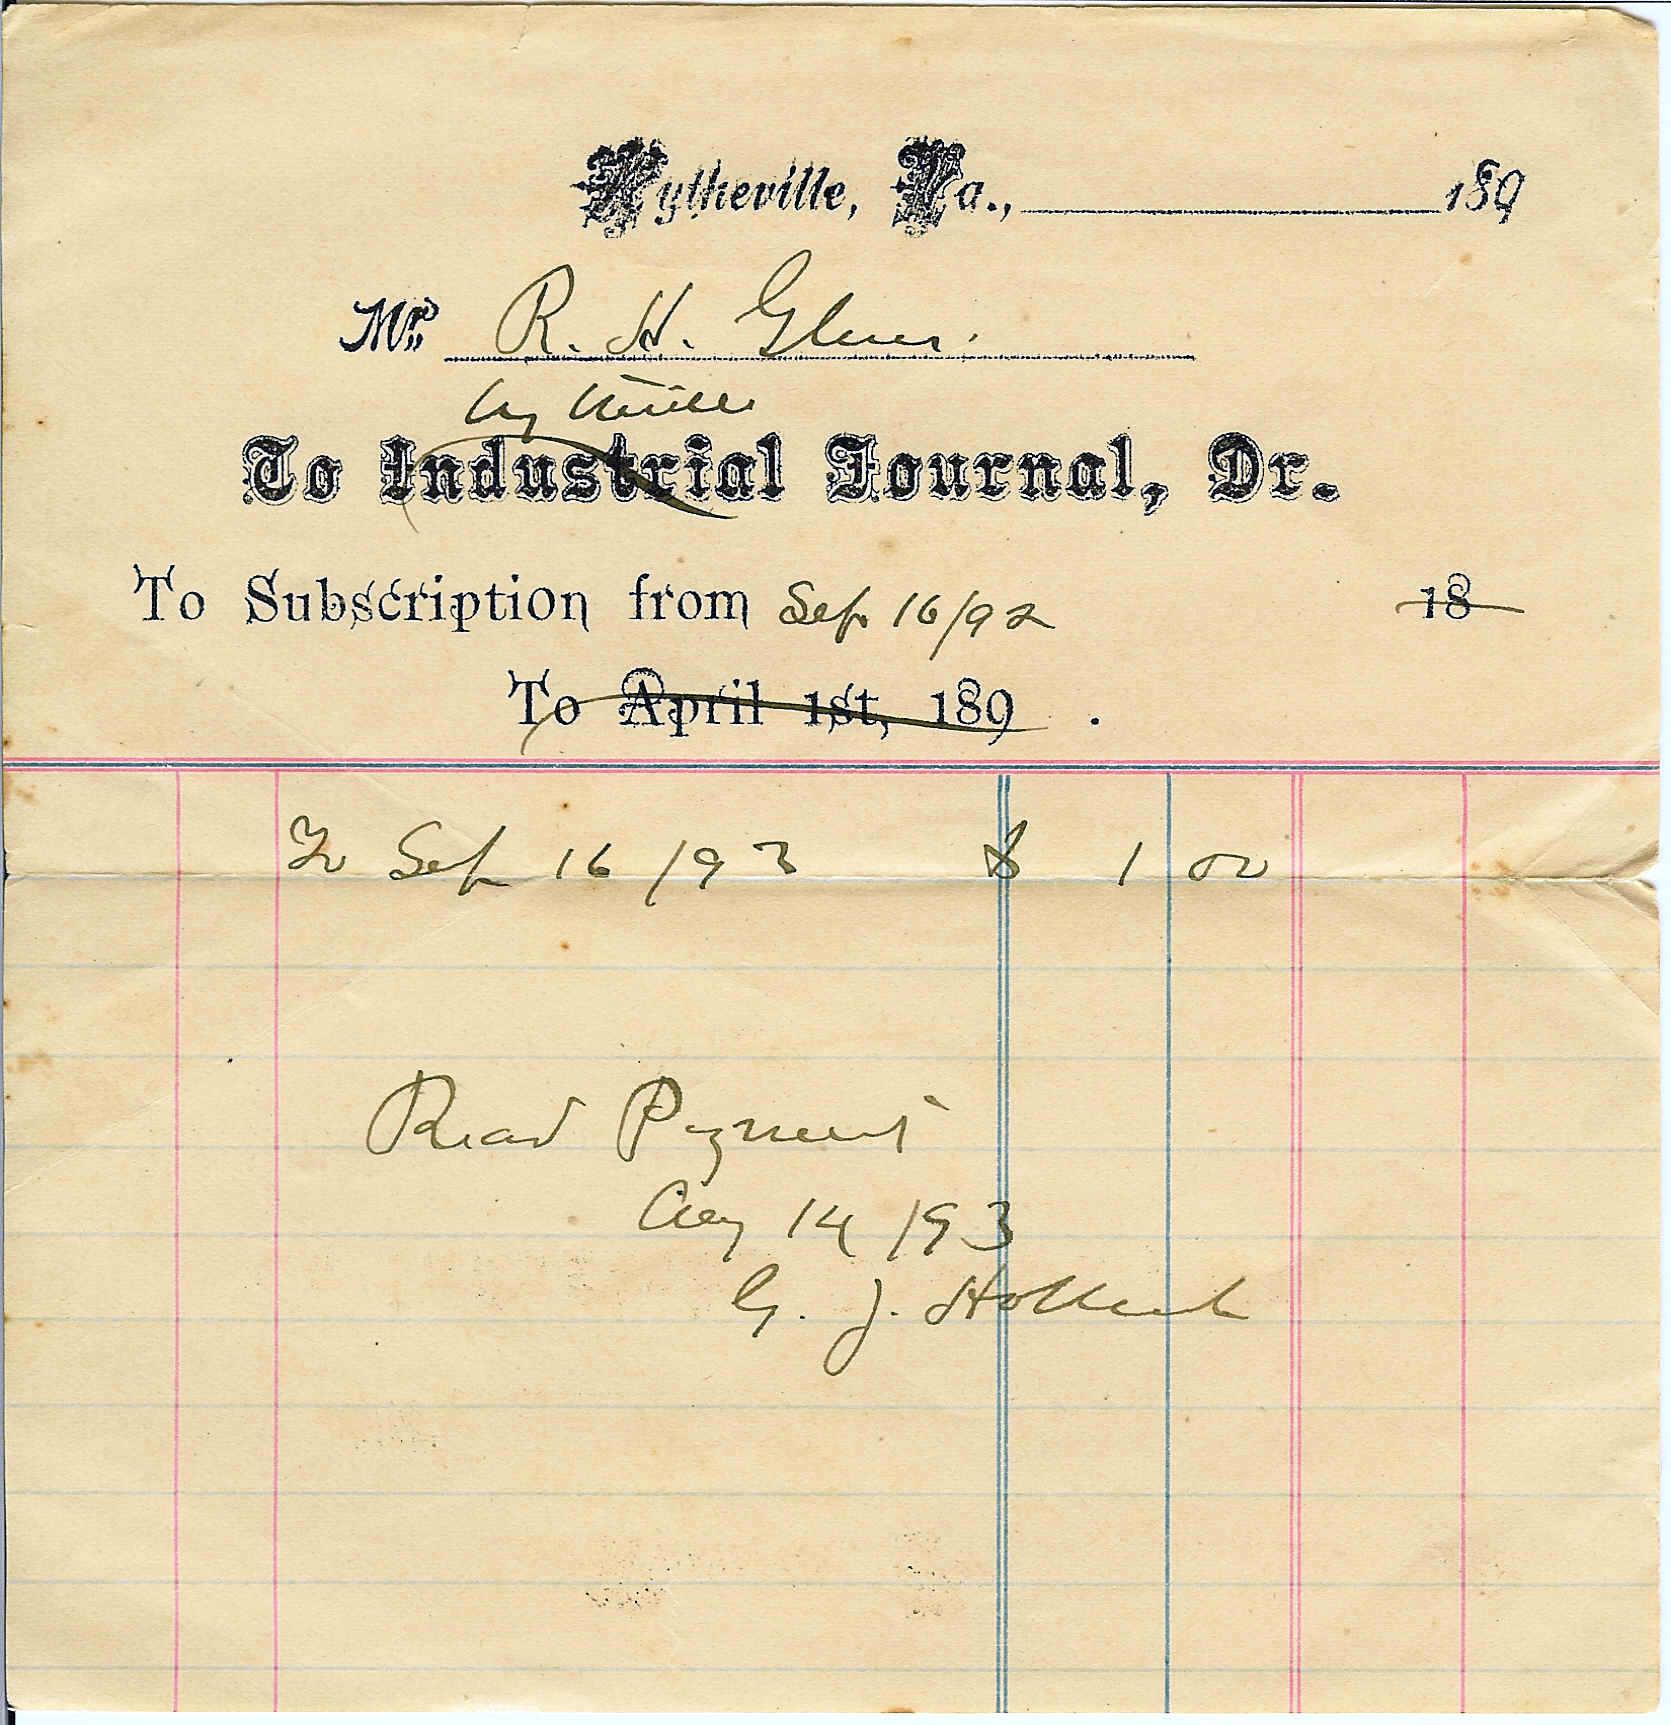 Wytheville, Va., 189
Mr. R. H. Glenn.
Wytheville
To Industrial Journal, Dr.
To Subscription from Sep 16/92 18
To April 1st, 189 .
To Sep 16/93 $ 1 00
Recd Payment
Aug 14/93
G. J. Holbrook